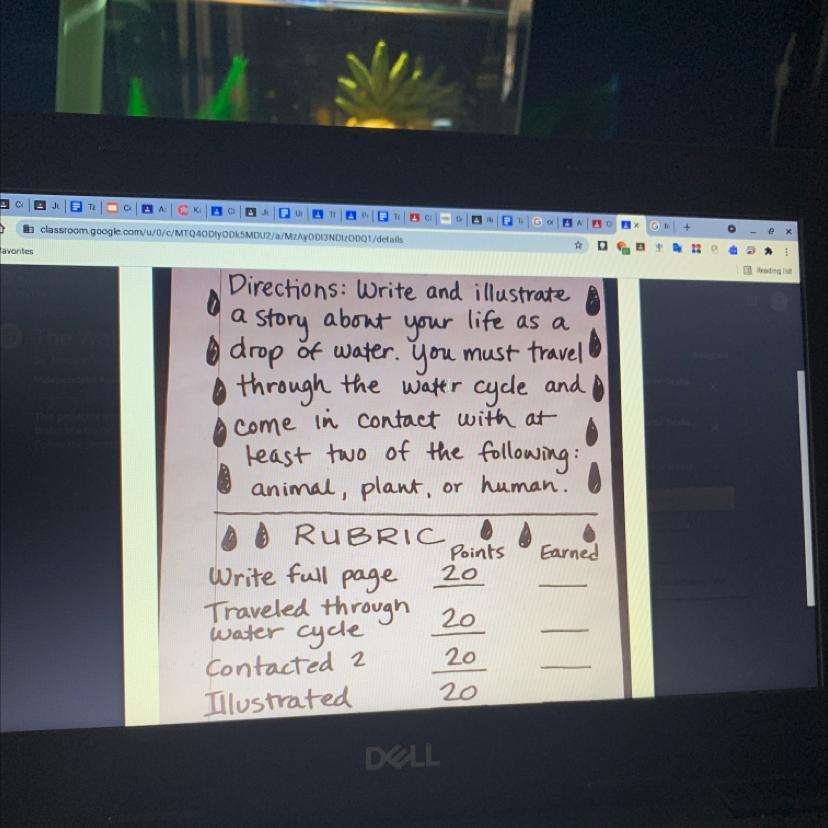 classroom.google.com/u/0/c/MTQ4ODIyODk5MDU2/a/MzAyODI3NDIzODQ1/details
avorites
Reading list
Directions: Write and illustrate
a story about your life as a
drop of water. You must travel
through the water cycle and
come in contact with at
least two of the following:
animal, plant, or human.
RUBRIC
Points Earned
Write full page 20
Traveled through
water cycle 20
Contacted 2 20
Illustrated 20
DELL